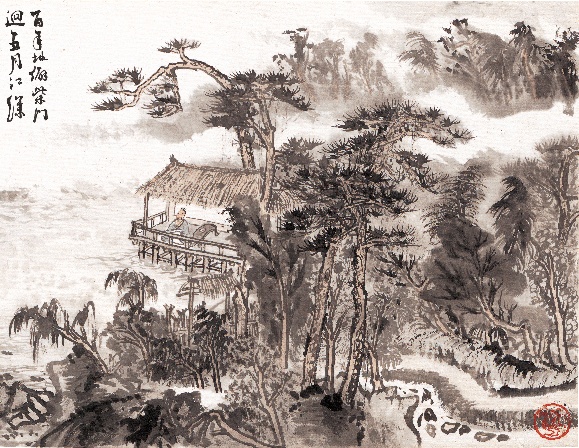 百年地僻柴门
迥五月江深